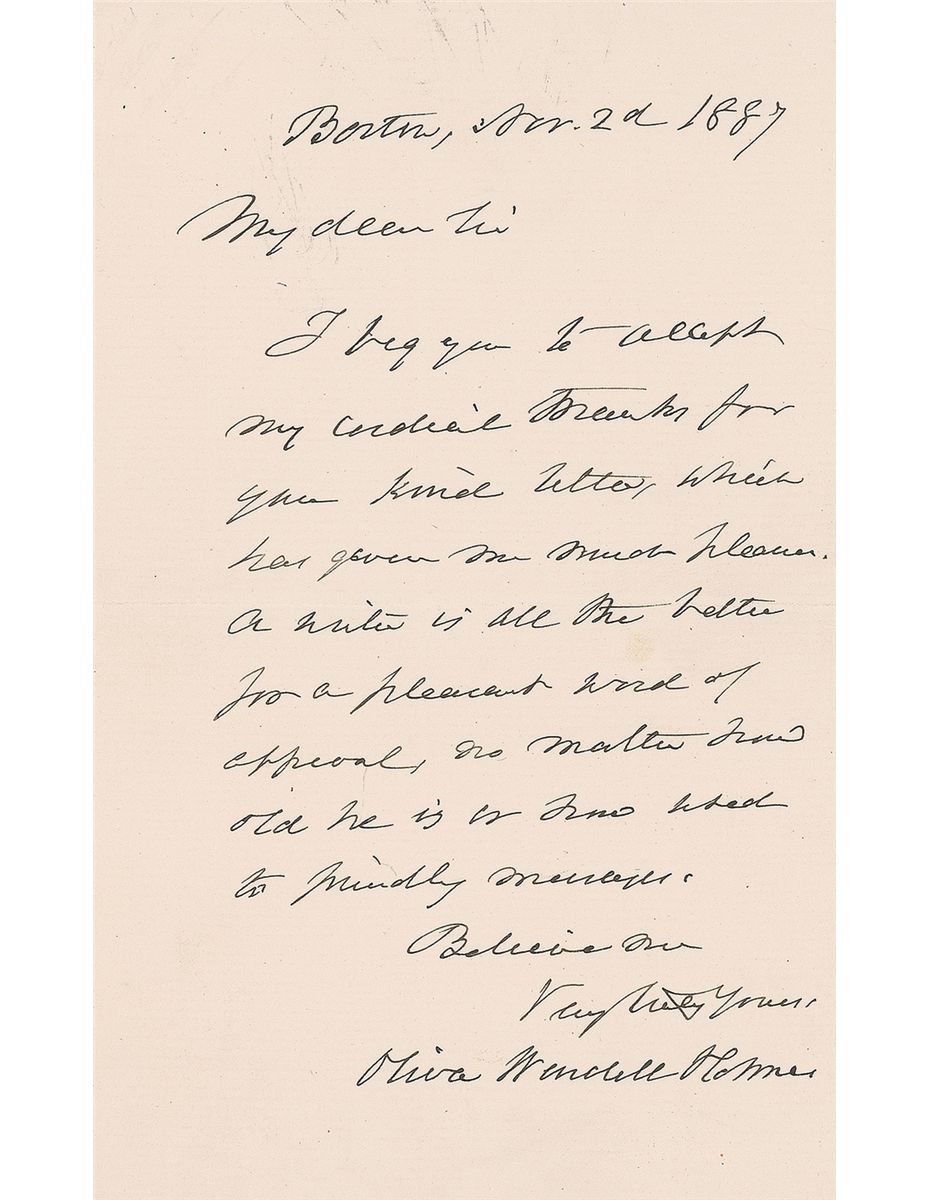 Boston, Nov. 2d 1887
My dear Sir
I beg you to accept
my cordial thanks for
your kind letter, which
has given me much pleasure.
A writer is all the better
for a pleasant word of
approval, no matter how
old he is or how used
to friendly messages.
Believe me
Very truly Yours,
Oliver Wendell Holmes